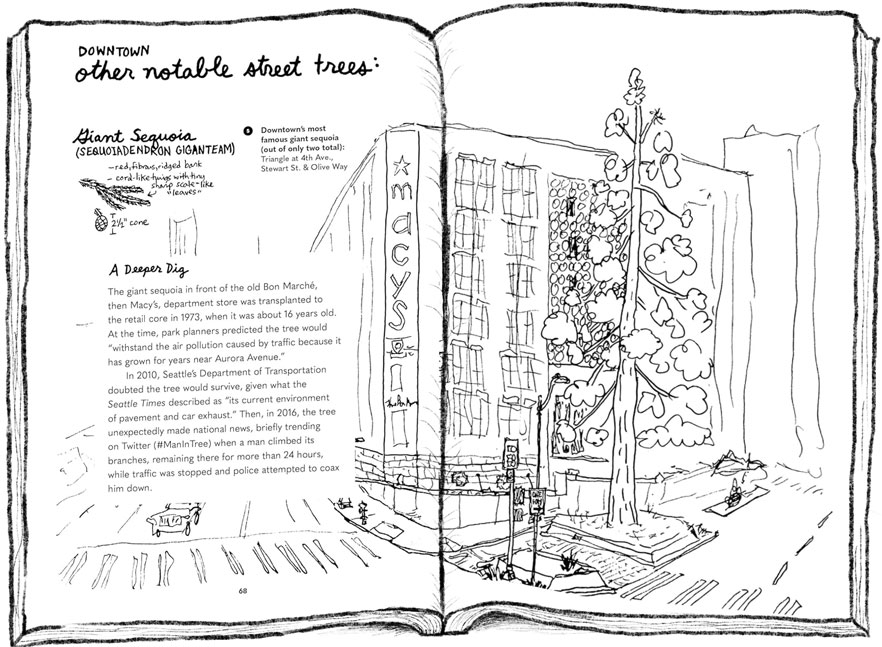 DOWNTOWN
other notable street trees:
Giant Sequoia
(SEQUOIADENDRON GIGANTEAM)
– red, fibrous, ridged bark
– cord-like twigs with tiny
sharp scale-like
"leaves"
2½" cone
Downtown's most
famous giant sequoia
(out of only two total):
Triangle at 4th Ave.,
Stewart St. & Olive Way
A Deeper Dig
The giant sequoia in front of the old Bon Marché,
then Macy's, department store was transplanted to
the retail core in 1973, when it was about 16 years old.
At the time, park planners predicted the tree would
"withstand the air pollution caused by traffic because it
has grown for years near Aurora Avenue."
In 2010, Seattle's Department of Transportation
doubted the tree would survive, given what the
Seattle Times described as "its current environment
of pavement and car exhaust." Then, in 2016, the tree
unexpectedly made national news, briefly trending
on Twitter (#ManInTree) when a man climbed its
branches, remaining there for more than 24 hours,
while traffic was stopped and police attempted to coax
him down.
68
macys